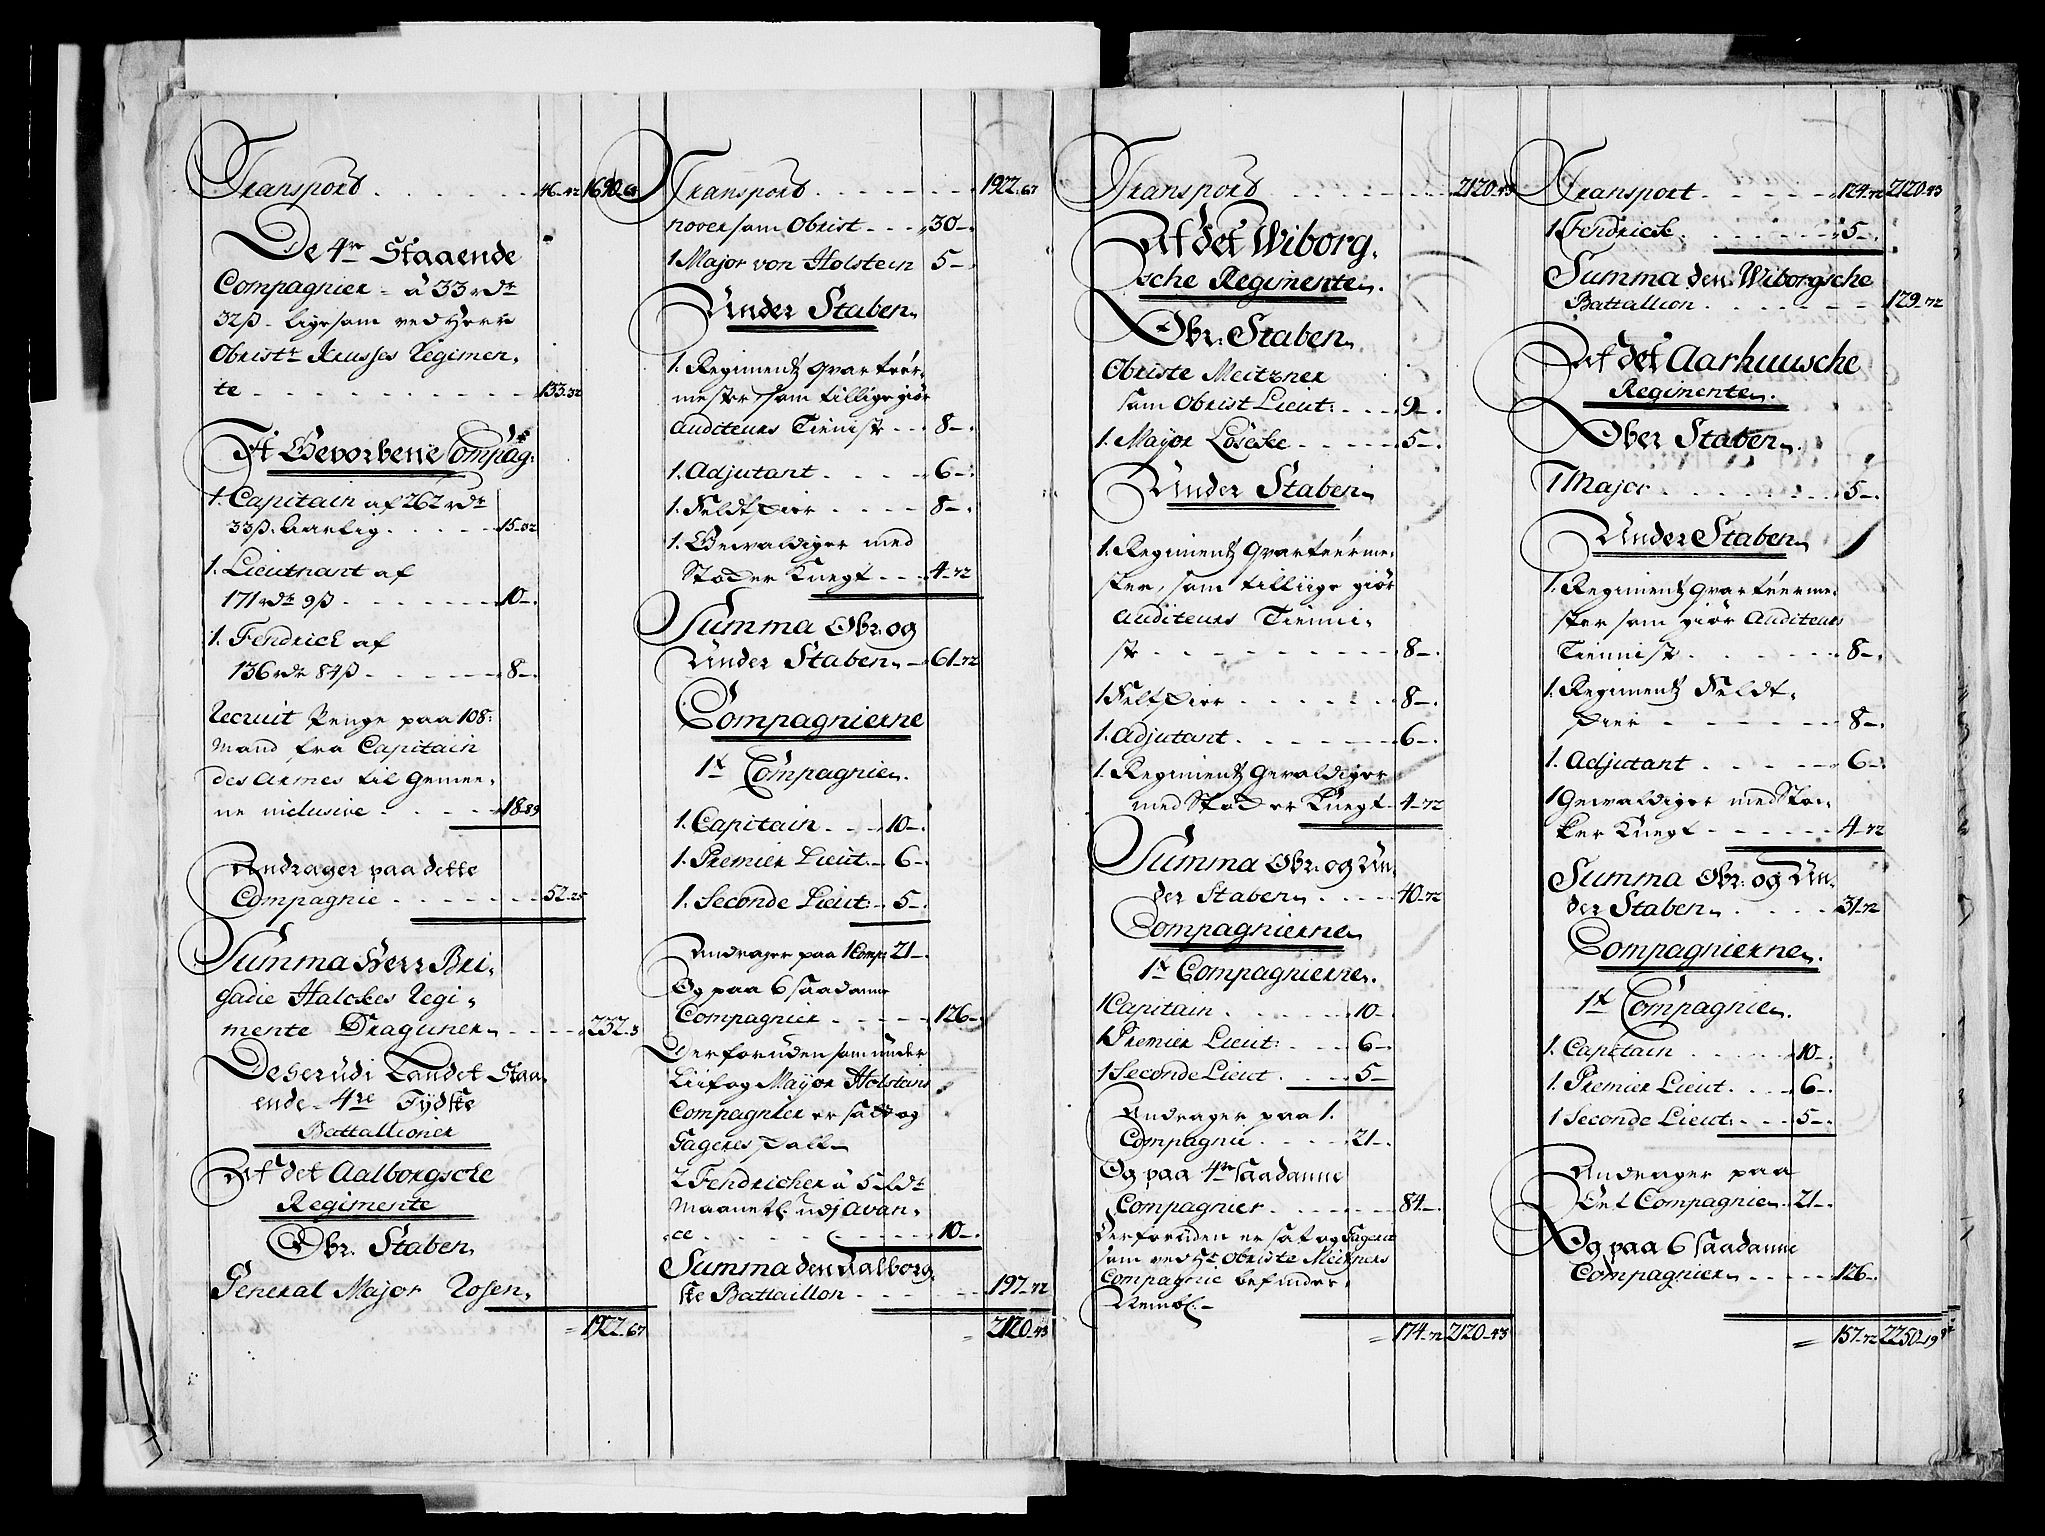 Transport . . . . . 46-42 1690-6
De 4re Staaende
Compagnier = á 33 rdr
32ß. ligesom ved Herr
Obristr Krusses Regimen,
te . . . . . . . . . 133-32
It Gevorbene Compag:
1. Capitain af 262 rdr
33ß. Aarlig . . . . 15-02
1. Lieutnant af
171 rdr 9ß . . . . . 10-.
1. Fendrich af
136 rdr 84ß . . . . . 8-.
Recruit Penge paa 108:
Mand fra Capitain
des Armes til Gemee-
ne inclusive . . . . 18-89
Andrager paa dette
Compagnie . . . . . 52-25
Summa Herr Bri,
gadie Halckes Regi,
mente Dragoner . . . 232-3
Deserudi Landet Staa,
ende 4re Tydske
Battallioner
Af det Aalborgsche
Regimente
Obr. Staben
General Major Rosen,
= 1922-67
Transport . . . . . 1922-67
nover som Obrist . . . 30-.
1 Major von Holstein 5-.
Under Staben
1. Regimentz Qvarteer-
mester, som tillige giör
Auditeurs Tienist . . 8-.
1. Adjutant . . . . 6-.
1. Feldtskier . . . . 8-.
1. Gewaldiger med
Stocker Knegt . . . 4-72
Summa Obr: og
Under Staben . 61-72
Compagnierne
1t Compagnie.
1. Capitain . . . 10-.
1. Premier Lieut: . 6-.
1. Seconde Lieut: . 5-.
Andrager paa 1 Comp: 21-.
Og paa 6 saadanne
Compagnier . . . . 126-.
Derforuden som under
Liif og Mayor Holsteins
Compagnier er satt og
Fageres fall
2 Fendricher á 5 rdr
Maanetl. udj Avan,
ce . . . . . . . . . 10-.
Summa den Aalborg,
ske Battallion . . . . 197-72
= 2120-43
Transport . . . . . . 2120-43
Af det Wiborg,
sche Regimente.
Obr: Staben
Obriste Meitzner
som Obrist Lieut: . . . 9-.
1. Mayor Löseke . . . . 5-.
Under Staben
1. Regimentz Qvarteerme,
ster, som tilliige giör
Auditeurs Tienni,
st . . . . . . . . . 8-.
1 Feltskier . . . . . . 8-.
1. Adjutant . . . . . . 6-.
1. Regimentz Gevaldiger
med Stocker Knegt . 4-72
Summa Obr: og Un,
der Staben . . . . 40-72
Compagnierne
1t Compagnierne.
1 Capitain . . . . . . 10-.
1 Premier Lieut: . . . 6-.
1 Seconde Lieut . . . . 5-
Andrager paa 1.
Compagnie . . . . . 21-.
Og paa 4re saadanne
Compagnier . . . . . . 84-.
Derforuden er sat og Fageret
som ved Hr Obriste Meitzners
Compagnie befinder,
Nembl: -
= 174-72 2120-43
Transport . . . . . 174-72 2120-43
1 Fendrick . . . . . . 5-.
Summa den Wiborgsche
Battallion . . . . . . 179-72
Af det Aarhuusche
Regimente.
Ober Staben
1 Major . . . . . . . 5-.
Under Staben
1. Regimentz Qvarteerme,
ster som giör Auditeurs
Tiennist . . . . . 8-.
1. Regimentz Feldt,
skier . . . . . . 8-.
1. Adjutant . . . . . 6-.
1 Gewaldiger med Stoc,
ker Knegt . . . . . 4-72
Summa Obr: og Un,
der Staben . . . . 31-72
Compagnierne.
1t Compagnie.
1. Capitain . . . . . 10-.
1. Premier Lieut . . . . 6-.
1 Seconde Lieut: . . . 5-.
Andrager paa
Eet Compagnie 21-.
Og paa 6 saadanne
Compagnier . . . . 126-.
= 157-72 2250-19